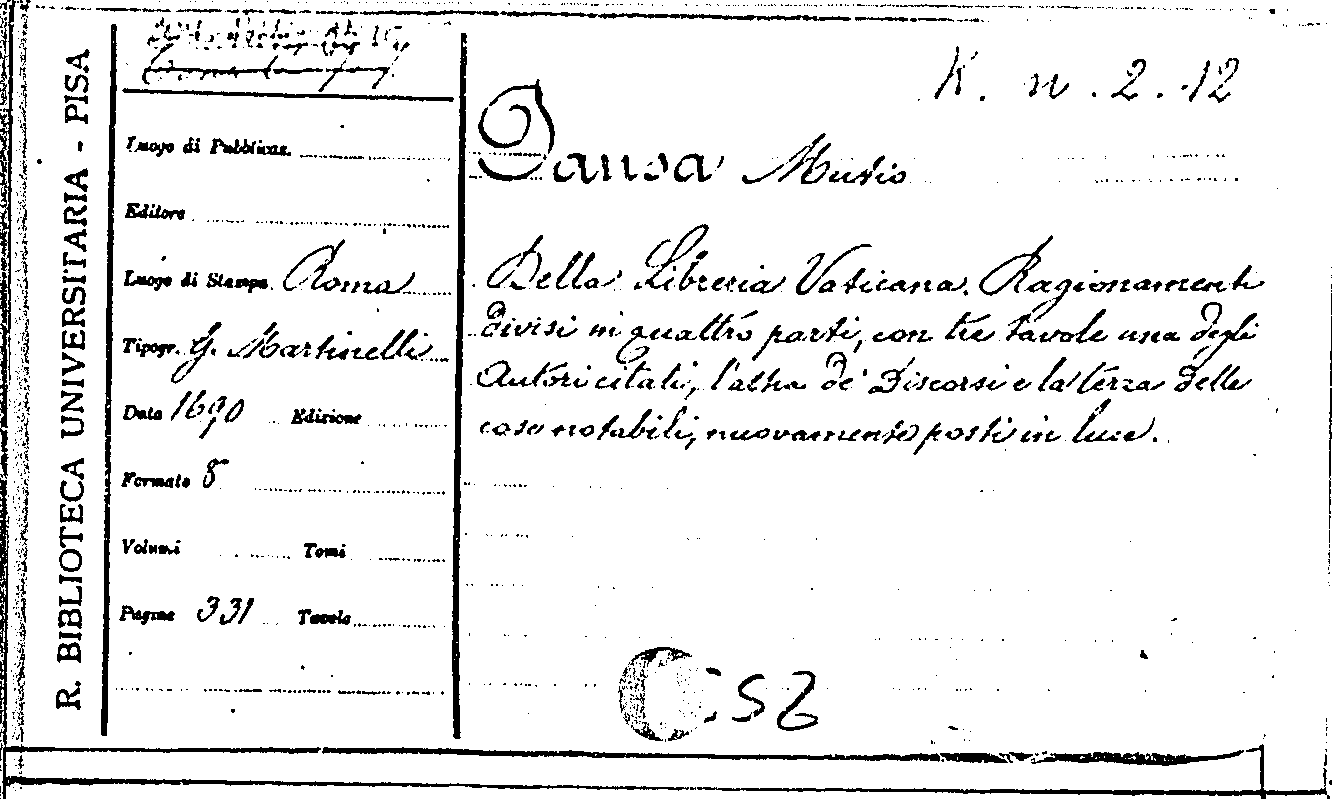 R. BIBLIOTECA UNIVERSITARIA - PISA
K. n. 2. 12
Luogo di Pubblicaz.
Editore
Luogo di Stampa Roma
Tipogr. G. Martinelli
Data 1690 Edizione
Formato 8
Volumi Tomi
Pagine 331 Tavole
Pansa Mutio
Della Libreria Vaticana. Ragionamenti
divisi in quattro parti, con tre tavole una degli
Autori citati, l'altra de' Discorsi e la terza delle
cose notabili, nuovamente posti in luce.